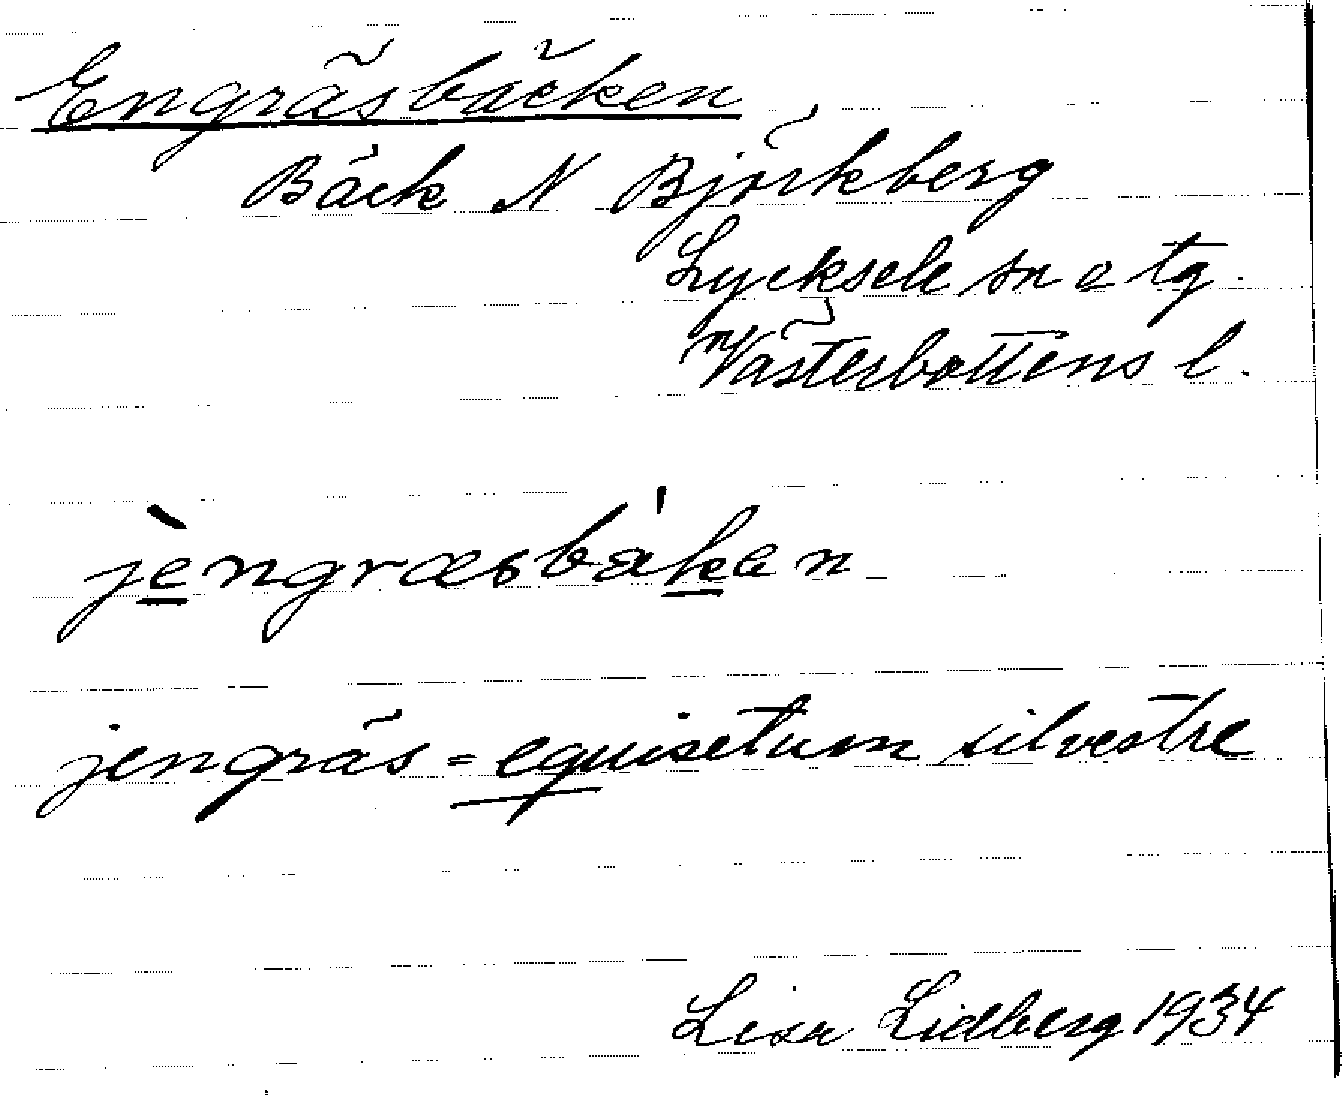 Engräsbäcken
Bäck N Björkberg
Lycksele sn o tg.
Västerbottens l.
jèngræsbàken
jengräs = equisetum silvestre
Lisa Lidberg 1934